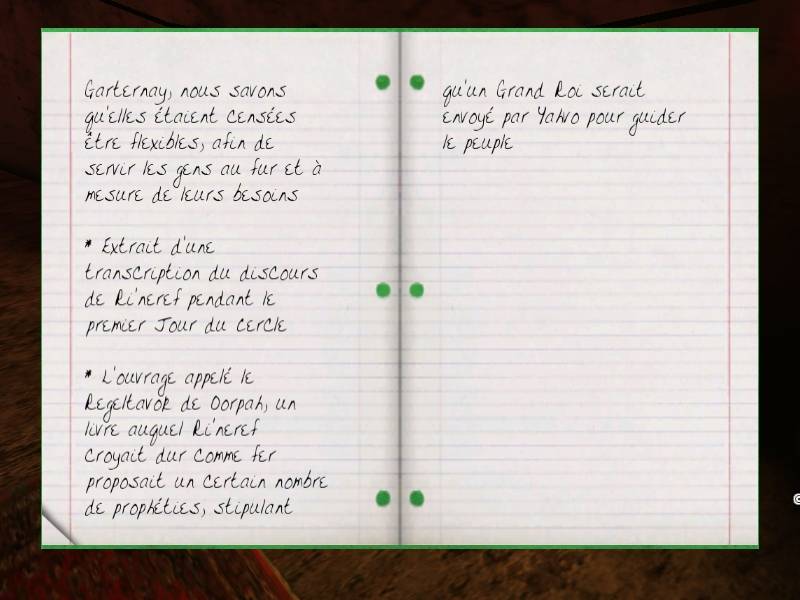 Garternay, nous savons
qu'elles étaient censées
être flexibles, afin de
servir les gens au fur et à
mesure de leurs besoins
* Extrait d'une
transcription du discours
de Ri'neref pendant le
premier Jour du cercle
* L'ouvrage appelé le
Regeltavok de Oorpah, un
livre auquel Ri'neref
croyait dur comme fer
proposait un certain nombre
de prophéties, stipulant
qu'un Grand Roi serait
envoyé par Yahvo pour guider
le peuple
©